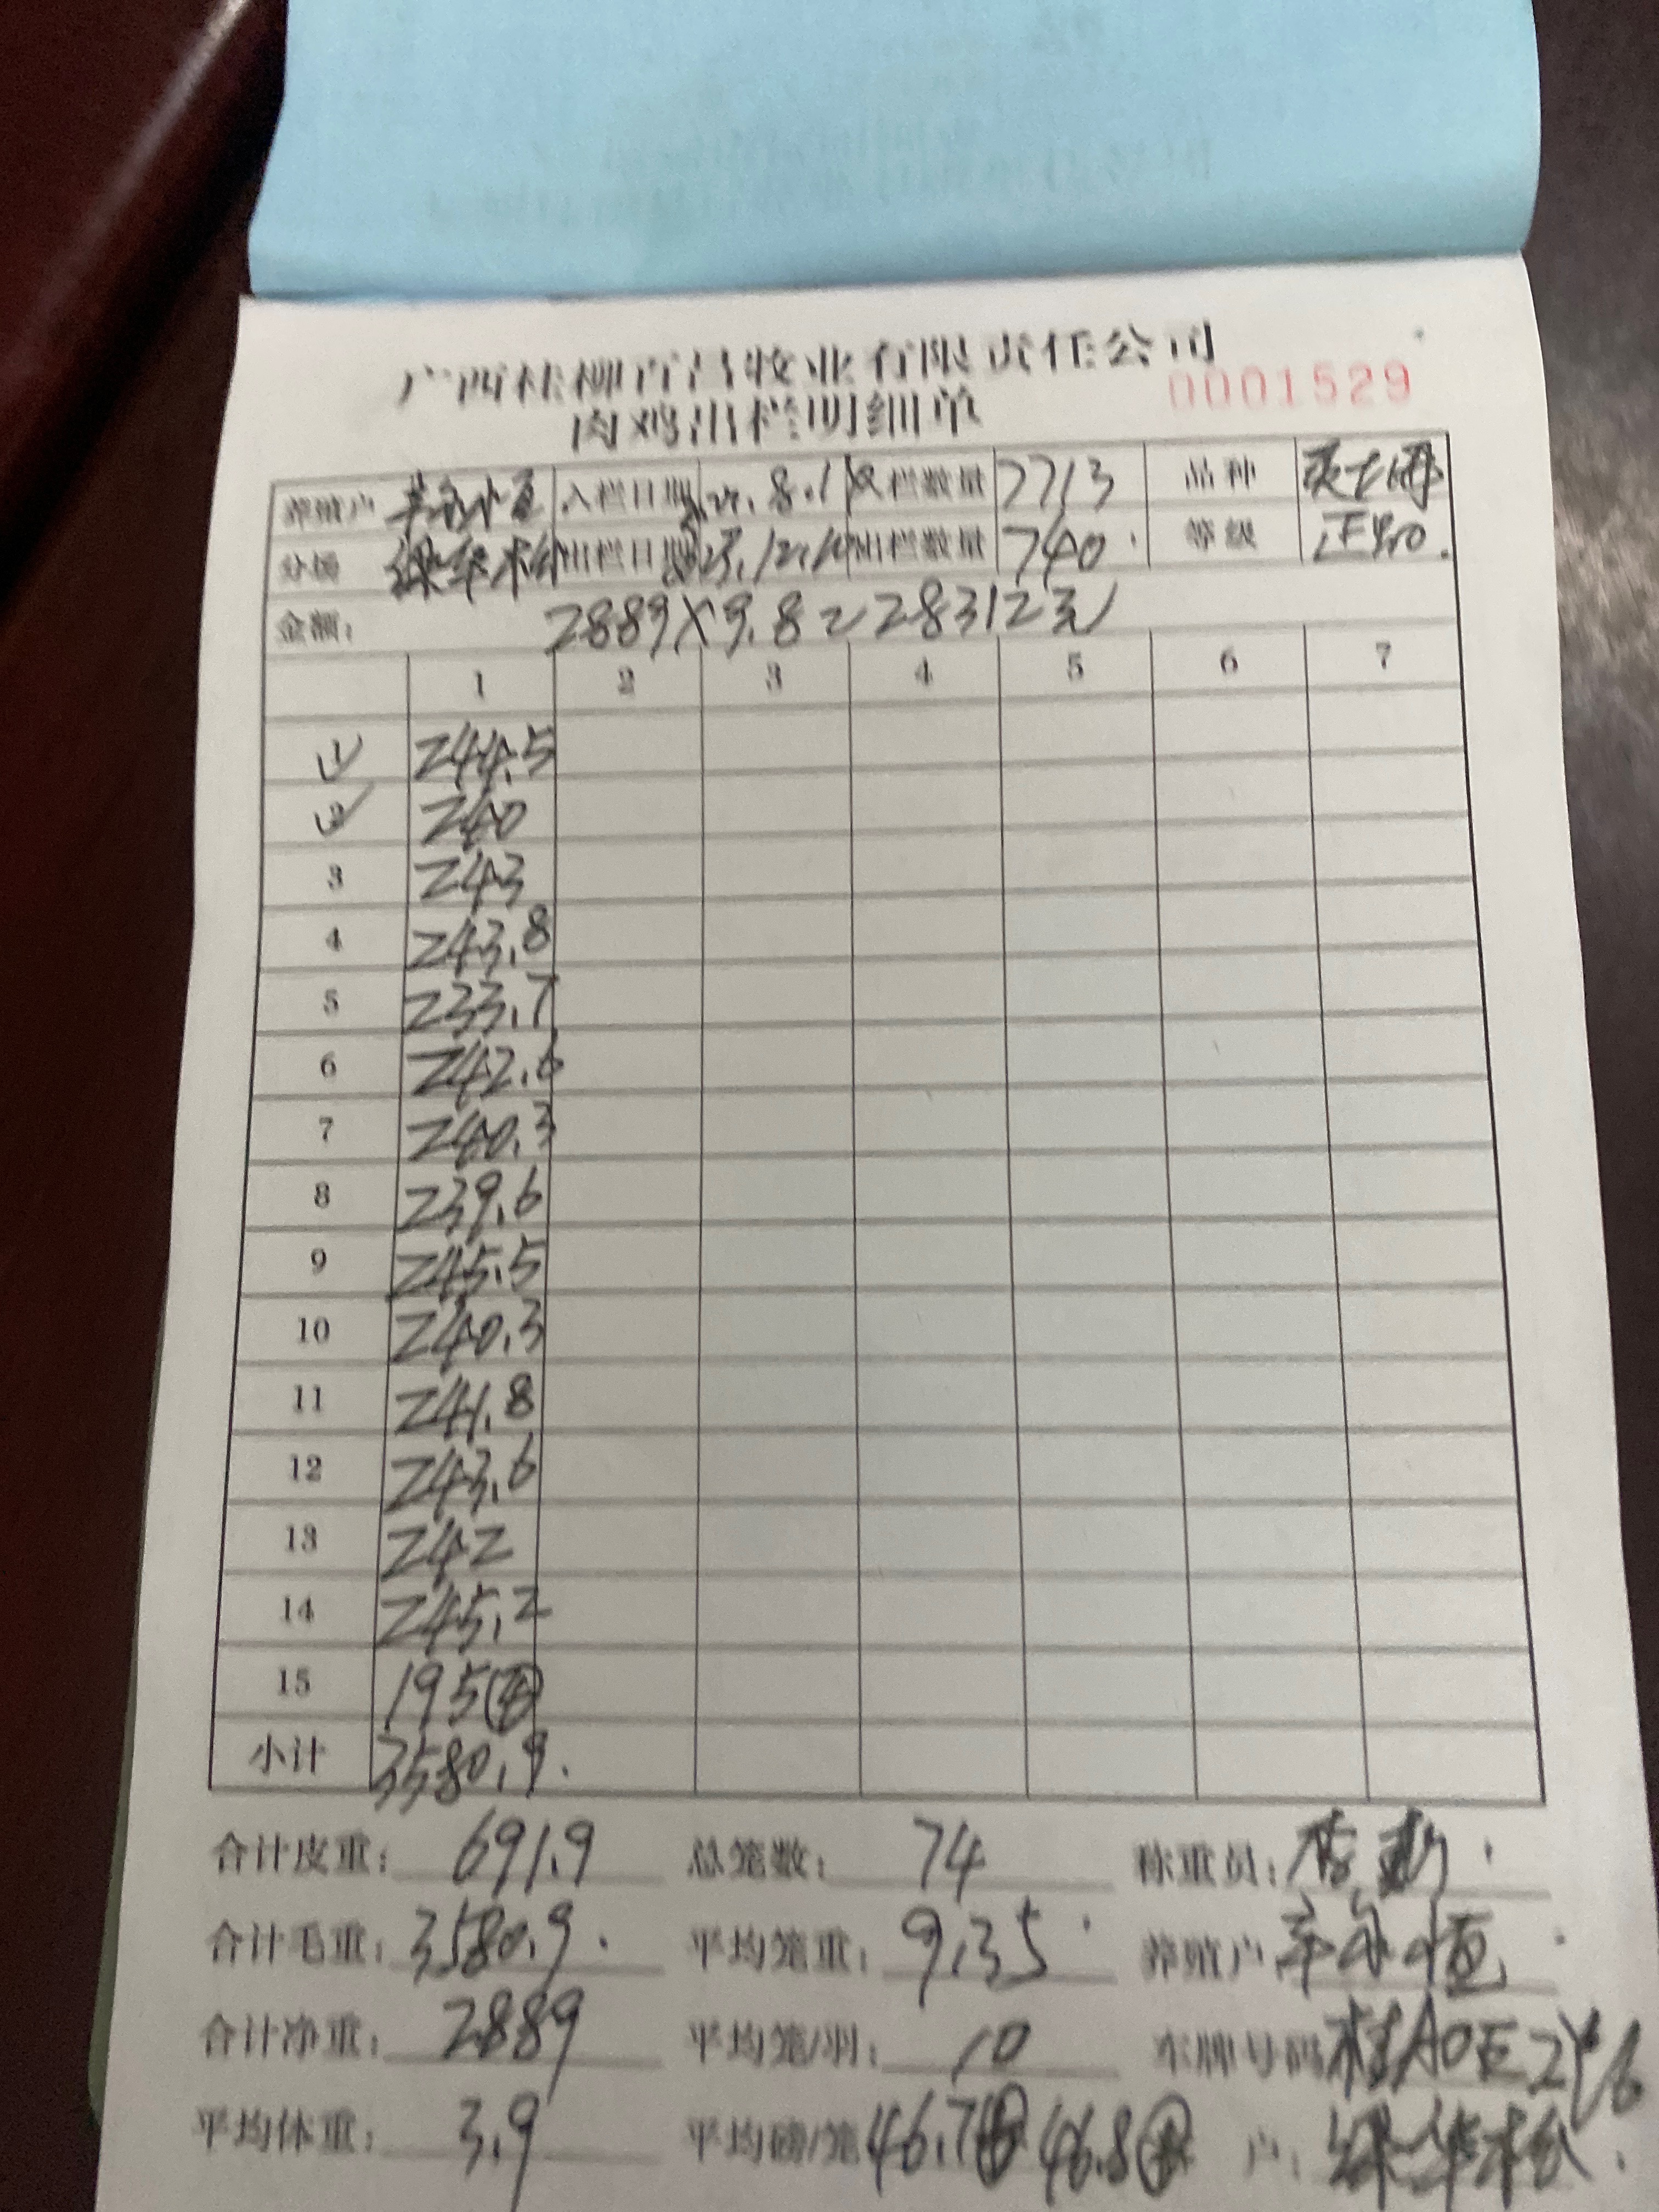 广西桂柳百昌牧业有限责任公司
肉鸡出栏明细单 0001529
养殖户 入栏日期 数量 7713 品种
分场 绿华 出栏日期 出栏数量 740 等级 正
金额: 2889×9.8=28312元
1 2 3 4 5 6 7
1 244.5
2 240
3 243
4 243.8
5 233.7
6 242.6
7 240.3
8 239.6
9 245.5
10 240.3
11 241.8
12 243.6
13 242
14 245.2
15 195
小计 3580.9
合计皮重: 691.9 总笼数: 74 称重员:
合计毛重: 3580.9 平均笼重: 9.35 养殖户
合计净重: 2889 平均笼/羽: 10 车牌号码 桂A0E2
平均体重: 3.9 平均磅/笼 46.7 46.8 户: 绿华